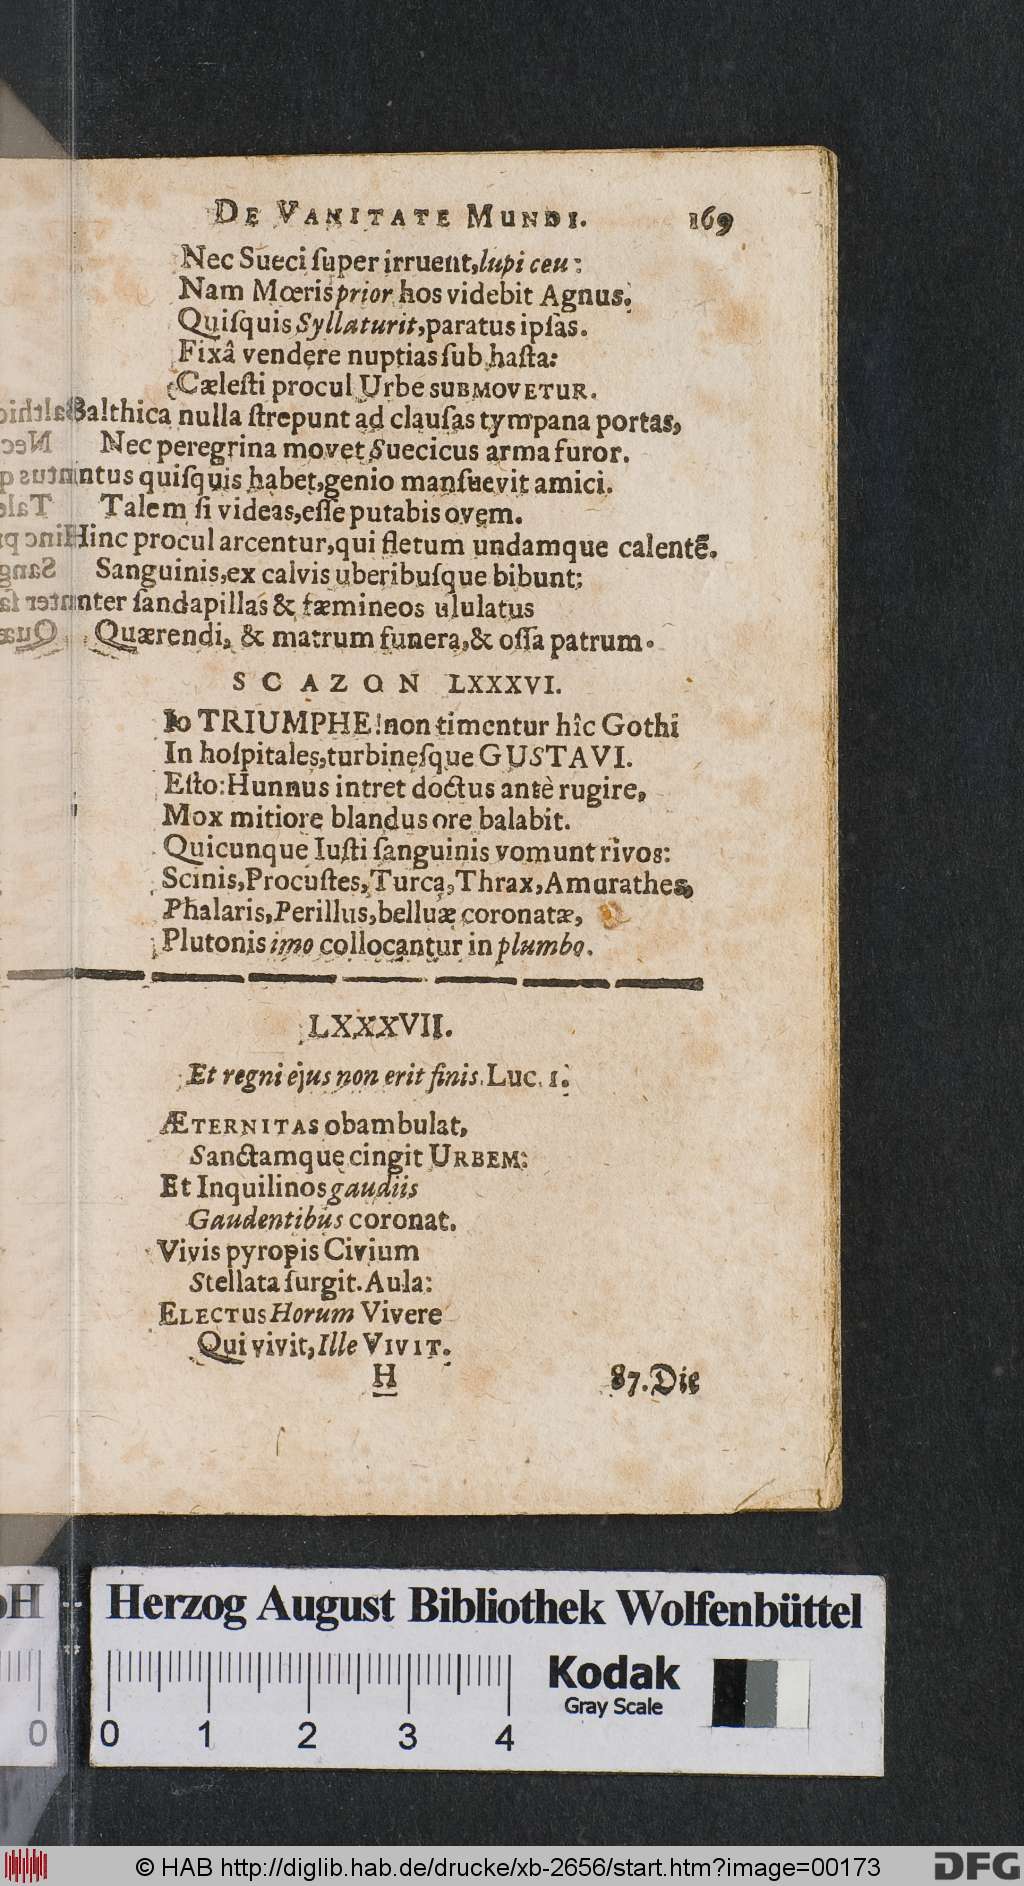 DE VANITATE MUNDI. 169
Nec Sueci ſuper irruent, lupi ceu:
Nam Mœris prior hos videbit Agnus.
Quiſquis Syllaturit, paratus ipſas.
Fixâ vendere nuptias ſub haſta:
Cæleſti procul Urbe SUBMOVETUR.
Balthica nulla ſtrepunt ad clauſas tympana portas,
Nec peregrina movet Suecicus arma furor.
intus quiſquis habet, genio manſuevit amici.
Talem ſi videas, eſſe putabis ovem.
Hinc procul arcentur, qui fletum undamque calentē.
Sanguinis, ex calvis uberibuſque bibunt;
inter ſandapillas & fæmineos ululatus
Quærendi, & matrum funera, & oſſa patrum.
SCAZON LXXXVI.
Io TRIUMPHE! non timentur hîc Gothi
In hoſpitales, turbineſque GUSTAVI.
Eſto: Hunnus intret doctus antè rugire,
Mox mitiore blandus ore balabit.
Quicunque Iuſti ſanguinis vomunt rivos:
Scinis, Procuſtes, Turca, Thrax, Amurathes,
Phalaris, Perillus, belluæ coronatæ,
Plutonis imo collocantur in plumbo.
LXXXVII.
Et regni ejus non erit finis. Luc. 1.
ÆTERNITAS obambulat,
Sanctamque cingit URBEM:
Et Inquilinos gaudiis
Gaudentibus coronat.
Vivis pyropis Civium
Stellata ſurgit. Aula:
ELECTUS Horum Vivere
Qui vivit, Ille VIVIT.
H 87. Die
Herzog August Bibliothek Wolfenbüttel
Kodak
Gray Scale
0 0 1 2 3 4
© HAB http://diglib.hab.de/drucke/xb-2656/start.htm?image=00173
DFG